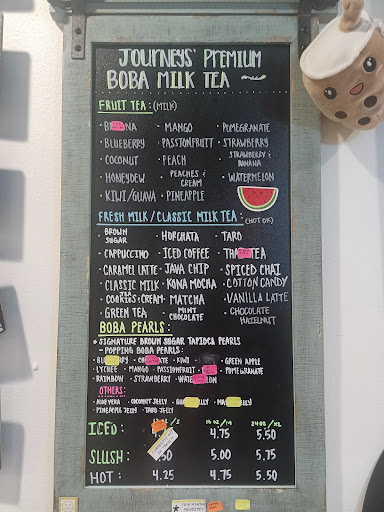 JOURNEYS' PREMIUM
BOBA MILK TEA
FRUIT TEA: (MILK)
· MANGO POMEGRANATE
· BLUEBERRY · PASSIONFRUIT · STRAWBERRY
· COCONUT · PEACH · STRAWBERRY & BANANA
· HONEYDEW · PEACHES & CREAM · WATERMELON
· KIWI/GUAVA · PINEAPPLE
FRESH MILK/CLASSIC MILK TEA: (HOT OK)
· BROWN SUGAR · HORCHATA · TARO
· CAPPUCCINO · ICED COFFEE · THAI TEA
· CARAMEL LATTE · JAVA CHIP · SPICED CHAI
· CLASSIC MILK TEA · KONA MOCHA · COTTON CANDY
· COOKIES & CREAM · MATCHA · VANILLA LATTE
· GREEN TEA · MINT CHOCOLATE · CHOCOLATE HAZELNUT
BOBA PEARLS:
· SIGNATURE BROWN SUGAR TAPIOCA PEARLS
- POPPING BOBA PEARLS:
· KIWI · GREEN APPLE
· LYCHEE · MANGO · PASSIONFRUIT · POMEGRANATE
· RAINBOW · STRAWBERRY
OTHERS:
· ALOE VERA · COCONUT JELLY
· PINEAPPLE JELLY · TARO JELLY
16 OZ / M 24 OZ / XL
ICED: 4.75 5.50
SLUSH: 5.00 5.75
HOT: 4.25 4.75 5.50